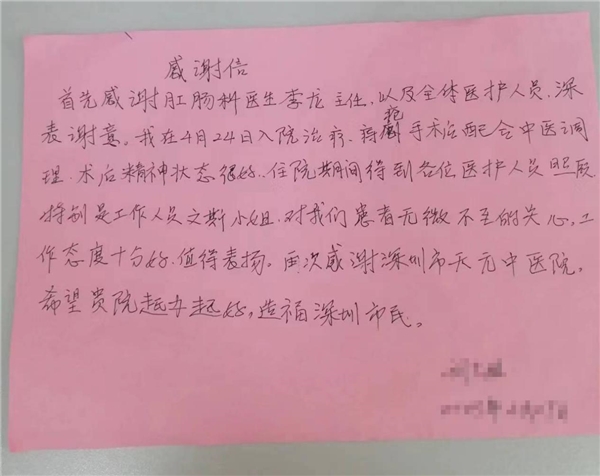 感谢信
首先感谢肛肠科医生李龙主任，以及全体医护人员，深
表谢意。我在4月24日入院治疗，痔疮手术后配合中医调
理，术后精神状态很好，住院期间得到各位医护人员照顾
特别是工作人员文斯小姐，对我们患者无微不至的关心，工
作态度十分好，值得表扬。再次感谢深圳市天元中医院，
希望贵院越办越好，造福深圳市民。